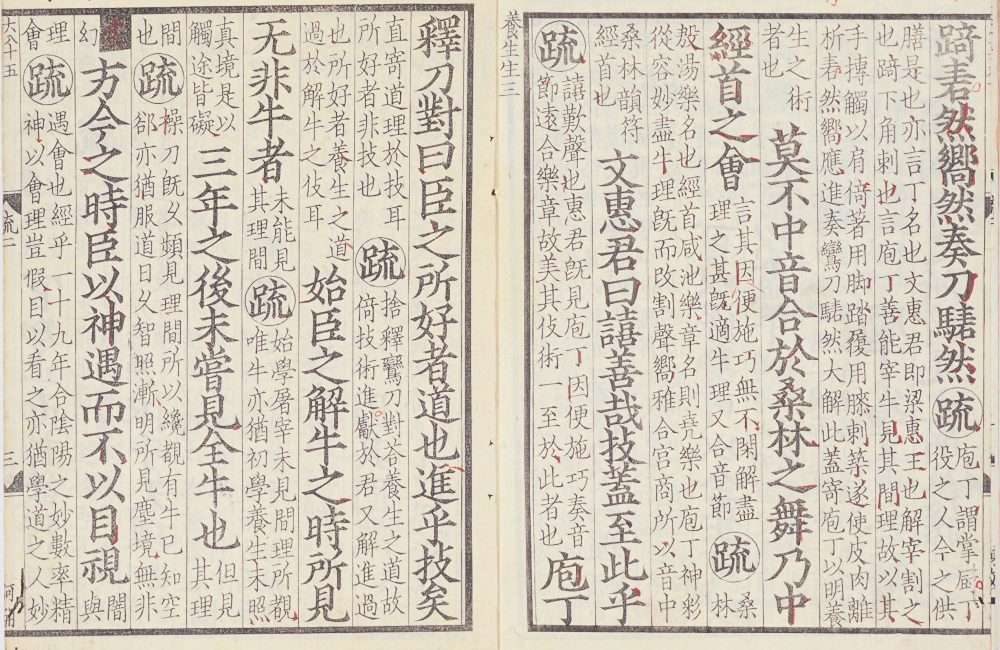 踦砉然嚮然奏刀騞然
疏
庖丁謂掌厨丁
役之人今之供
膳是也亦言丁名也文惠君即梁惠王也解宰割之
也踦下角刺也言庖丁善能宰牛見其間理故以其
手摶觸以肩倚著用脚踏履用膝刺築遂使皮肉離
析砉然嚮應進奏鸞刀騞然大解此盖寄庖丁以明養
生之術
者也
莫不中音合於桑林之舞乃中
經首之會
言其因便施巧無不閑解盡
理之甚旣適牛理又合音節
疏
桑
林
殷湯樂名也經首咸池樂章名則堯樂也庖丁神彩
從容妙盡牛理旣而改割聲嚮雅合宮商所以音中
桑林韻符
經首也
文惠君曰譆善哉技蓋至此乎
疏
譆歎聲也惠君旣見庖丁因便施巧奏音
節遠合樂章故美其伎術一至於此者也
庖丁
養生主三
釋刀對曰臣之所好者道也進乎技矣
直寄道理於技耳
所好者非技也
疏
捨釋鸞刀對荅養生之道故
倚技術進獻於君又解進過
也所好者養生之道
過於解牛之伎耳
始臣之解牛之時所見
无非牛者
未能見
其理間
疏
始學屠宰未見間理所覩
唯牛亦猶初學養生未照
真境是以
觸途皆礙
三年之後未嘗見全牛也
但見
其理
間
也
疏
操刀旣久頻見理間所以纔覩有牛已知空
郤亦猶服道日久智照漸明所見塵境無非
幻
方今之時臣以神遇而不以目視
闇
與
理
會
疏
遇會也經乎一十九年合陰陽之妙數率精
神以會理豈假目以看之亦猶學道之人妙
六十五
疏二
三